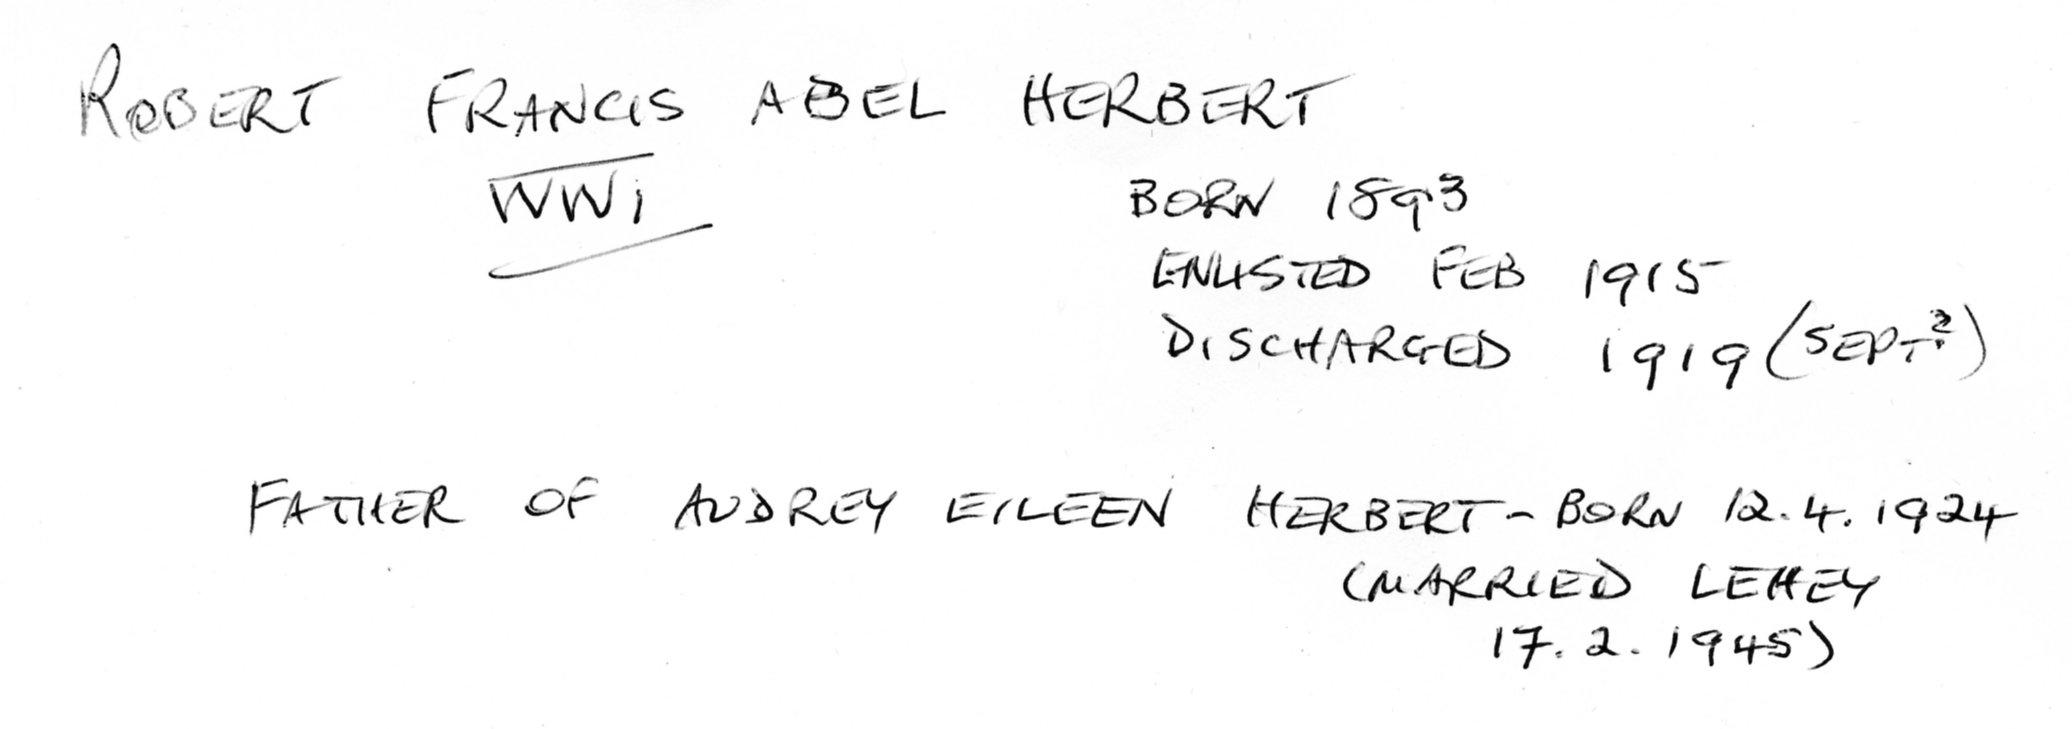 ROBERT FRANCIS ABEL HERBERT
WWI
BORN 1893
ENLISTED FEB 1915
DISCHARGED 1919 (SEPT?)
FATHER OF AUDREY EILEEN HERBERT - BORN 12.4.1924
(MARRIED LEHEY
17.2.1945)